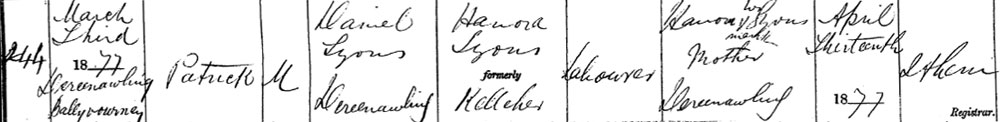 244
March
Third
1877
Dereenawling
Ballyvourney
Patrick
M
Daniel
Lyons
Dereenawling
Hanora
Lyons
formerly
Kelleher
Labourer
Hanora X Lyons
her
mark
Mother
Dereenawling
April
Thirteenth
1877
Registrar.